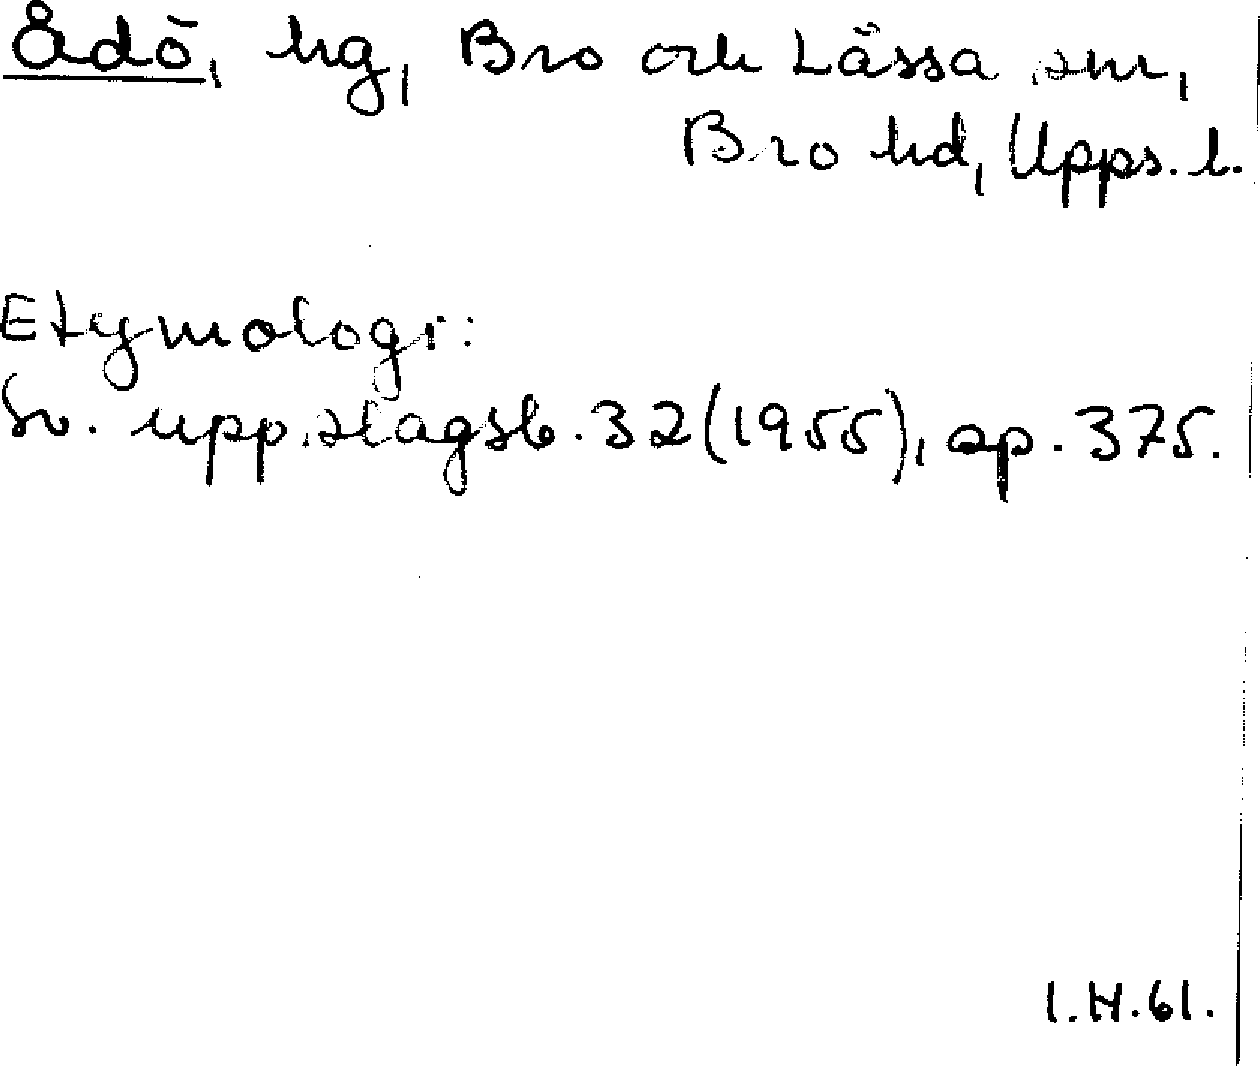 Ådö, hg, Bro och Lässa snr,
Bro hd, Upps. l.
Etymologi:
Sv. uppslagsb. 32 (1955), sp. 375.
I.H.61.